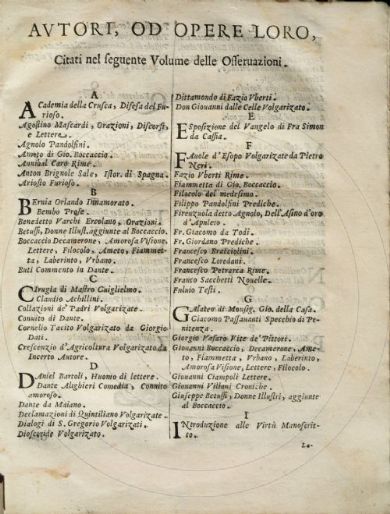 AVTORI, OD OPERE LORO,
Citati nel seguente Volume delle Osseruazioni.
A
Academia della Crusca, Difesa del Fu-
rioso.
Agostino Mascardi, Orazioni, Discorsi,
e Lettere.
Agnolo Pandolfini.
Ameto di Gio. Boccaccio.
Annibal Caro Rime.
Anton Brignole Sale, Istor. di Spagna.
Ariosto Furioso.
B
Bernia Orlando Innamorato.
Bembo Prose.
Benedetto Varchi Ercolano, Orazioni.
Betussi, Donne Illust. aggiunte al Boccaccio.
Boccaccio Decamerone, Amorosa Visione,
Lettere, Filocolo, Ameto, Fiammet-
ta, Laberinto, Vrbano.
Buti Commento in Dante.
C
Cirugia di Mastro Guiglielmo.
Claudio Achillini.
Collazioni de' Padri Volgarizate.
Conuito di Dante.
Cornelio Tacito Volgarizato da Giorgio
Dati.
Crescenzio d'Agricoltura Volgarizato da
Incerto Autore.
D
Daniel Bartoli, Huomo di lettere.
Dante Alighieri Comedia, Conuito
amoroso.
Dante da Maiano.
Declamazioni di Quintiliano Volgarizate.
Dialogi di S. Gregorio Volgarizati.
Dioscoride Volgarizato.
Dittamondo di Fazio Vberti.
Don Giouanni dalle Celle Volgarizato.
E
Esposizione del Vangelo di Fra Simon
da Cassia.
F
Fauole d'Esopo Volgarizate da Pietro
Neri.
Fazio Vberti Rime.
Fiammetta di Gio. Boccaccio.
Filocolo del medesimo.
Filippo Pandolfini Prediche.
Firenzuola detto Agnolo, Dell'Asino d'oro
d'Apuleio.
Fr. Giacomo da Todi.
Fr. Giordano Prediche.
Francesco Bracciolini.
Francesco Loredani.
Francesco Petrarca Rime.
Franco Sacchetti Nouelle.
Fuluio Testi.
G
Galateo di Monsig. Gio. della Casa.
Giacomo Passauanti Specchio di Pe-
nitenza.
Giorgio Vasaro Vite de' Pittori.
Giouanni Boccaccio, Decamerone, Ame-
to, Fiammetta, Vrbano, Laberinto,
Amorosa Visione, Lettere, Filocolo.
Giouanni Ciampoli Lettere.
Giouanni Villani Croniche.
Giuseppe Betussi, Donne Illustri, aggiunte
al Boccaccio.
I
Introduzione alle Virtù Manoscrit-
to.
La-